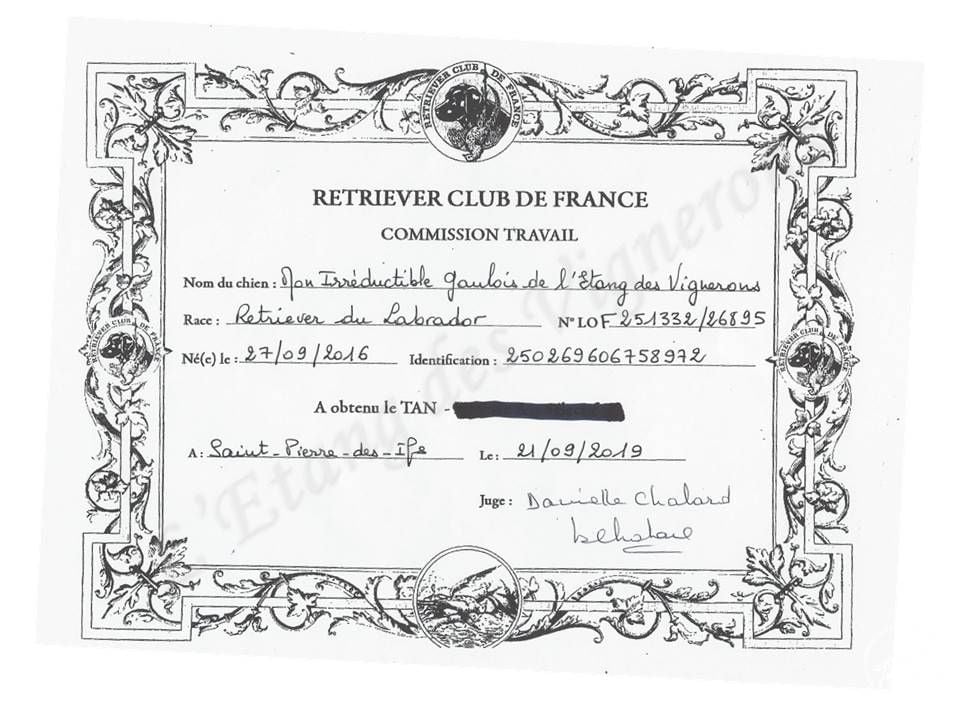 RETRIEVER CLUB DE FRANCE
RETRIEVER CLUB DE FRANCE
COMMISSION TRAVAIL
Nom du chien : Mon Irréductible Gaulois de l'Etang des Vignerons
Race : Retriever du Labrador N° LOF 251332/26895
RETRIEVER CLUB DE FRANCE
RETRIEVER CLUB DE FRANCE
Né(e) le : 27/09/2016 Identification : 250269606758972
A obtenu le TAN -
A : Saint-Pierre-des-Ifs Le : 21/09/2019
Juge : Danielle Chalard
L'Etang des Vignerons